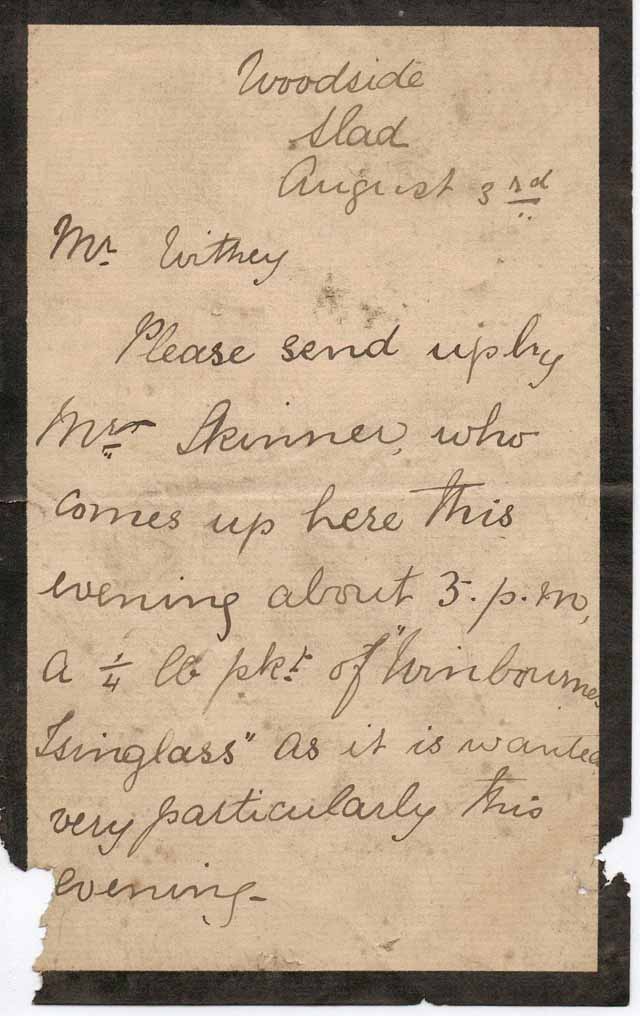 Woodside
Slad
August 3rd
Mr. Withey
Please send up by
Mrs Skinner, who
comes up here this
evening about 5. p.m,
a 1/4 lb pkt of "Winbournes
Isinglass" as it is wanted
very particularly this
evening-